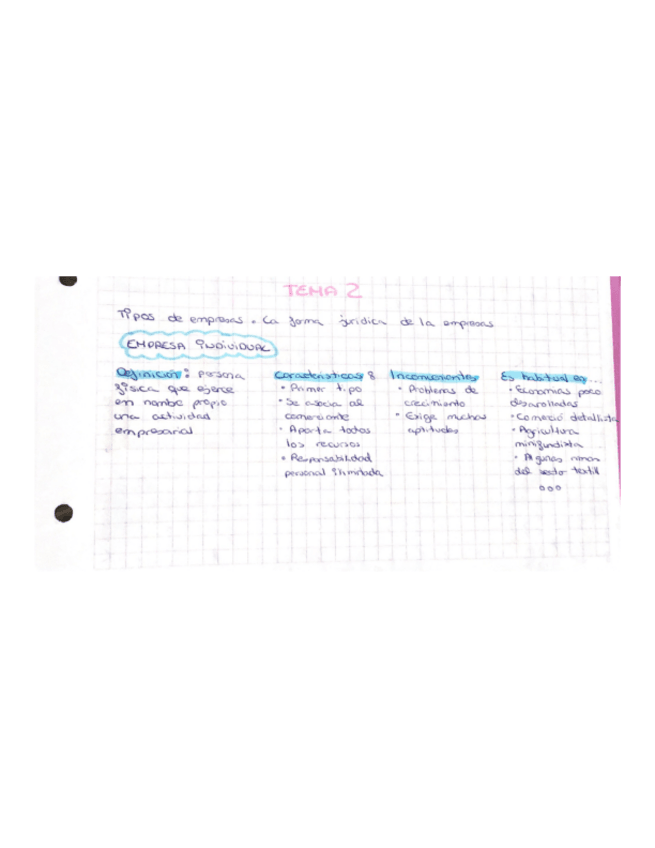 TEMA 2
Tipos de empresas. La forma jurídica de la empresas
EMPRESA INDIVIDUAL
Definición: persona
física que ejerce
en nombre propio
una actividad
empresarial
Características:
• Primer tipo
• Se asocia al
comerciante
• Aporta todos
los recursos
• Responsabilidad
personal ilimitada
Inconvenientes
• Problemas de
crecimiento
• Exige muchas
aptitudes
Es habitual en...
• Economías poco
desarolladas
• Comercio detallista
• Agricultura
minifundista
• Algunas ramas
del sector textil
ooo